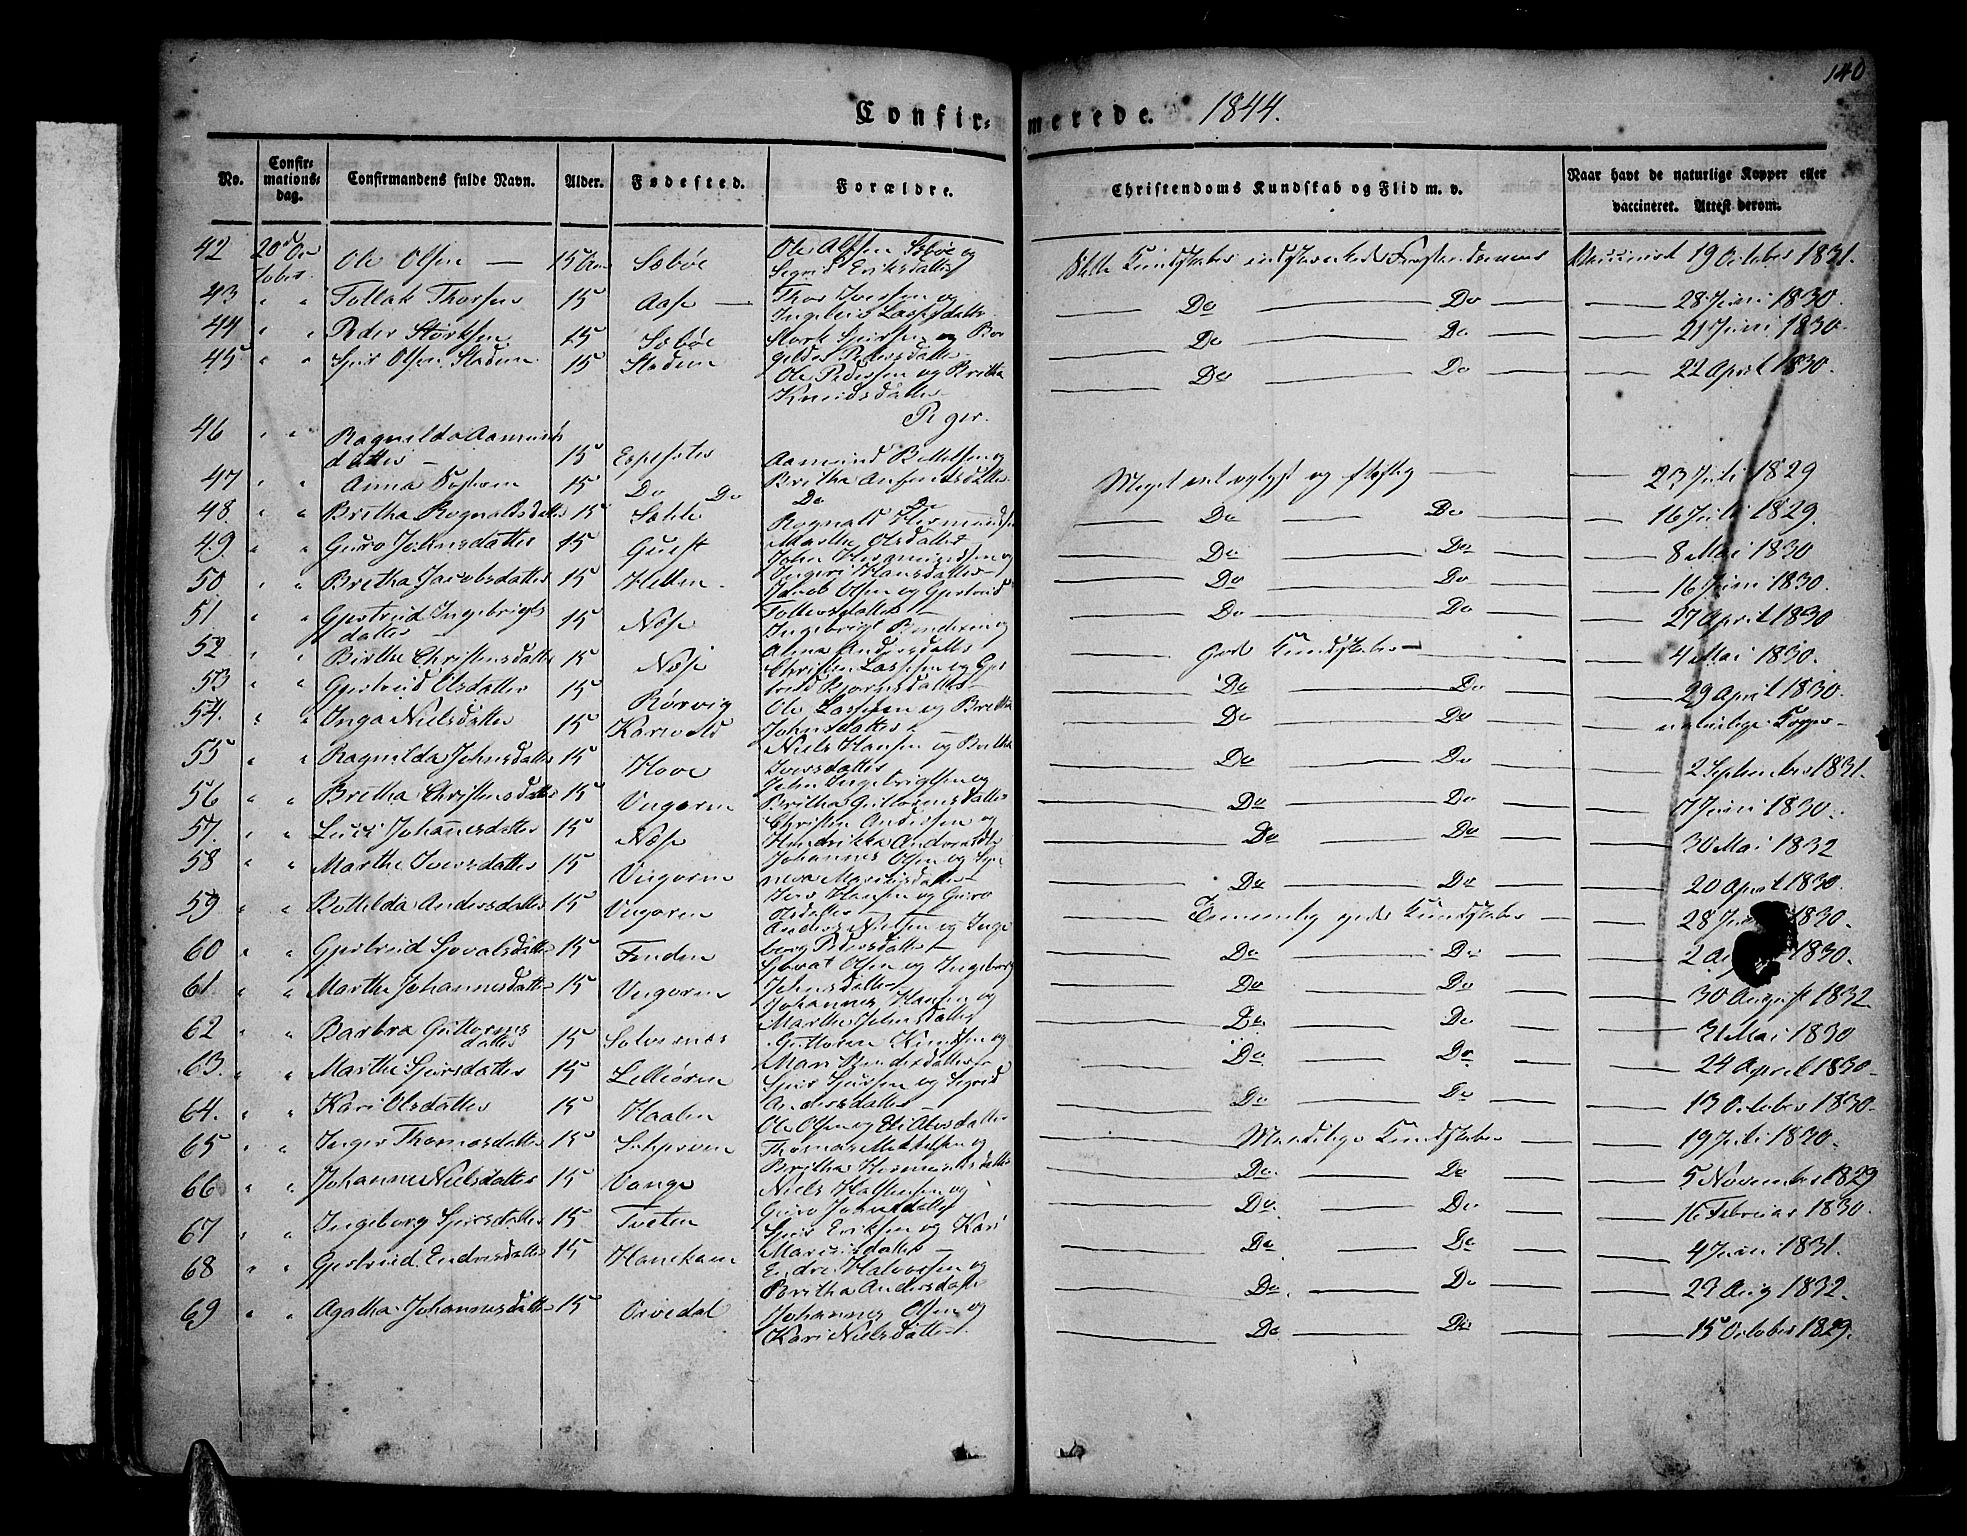 140
Confirmerede. 1844.
No. Confirmationsdag. Confirmandens fulde Navn. Alder. Fødested. Forældre. Christendoms Kundskab og Flid m. v. Naar havt de naturlige Kopper eller vaccineret. Attest derom.
42 20de October Ole Olsen 15 Aar Sæbøe Ole Olsen Sæbøe og Sigrid Eriksdatter Kundskaber Vaccineret 19 October 1831.
43 " " Tollak Thorsen 15 Aase Thor Iversen og Ingeleiv Lassesdatter Do Do 28 Juni 1830.
44 " " Peder Størksen 15 Sæbøe Størk Sjursen og Bor
gilde Pedersdatter Do Do 21 Juni 1830.
45 " " Sjur Olsen Stadem 15 Stadem Ole Pedersen og Britha
Knudsdatter Do Do 22 April 1830.
Piger.
46 " " Ragnilda Aamunds
datter 15 Espeseter Aamund Bottelsen og
Britha Meget vel oplyst og flittig 23 Juli 1829
47 " " Anna 15 Do Do Do Do Do Do 16 Juli 1829.
48 " " Britha Rognaldsdatter 15 Rognald
Marthe Olsdatter Do Do 8 Mai 1830
49 " " Guro Johnsdatter 15 John og
Ingeri Hansdatter Do Do 16 Juni 1830.
50 " " Britha Jacobsdatter 15 Hellem Jacob Olsen og Gjertrud
Do Do 27 April 1830
51 " " Gjertrud Ingebrigts
datter 15 Næse Ingebrigt og
Anna Andersdatter Gode Kundskaber 4 Mai 1830.
52 " " Birthe Christensdatter 15 Næse Christen Lassesen og Gjer
trud Do Do 29 April 1830.
53 " " Gjertrud Olsdatter 15 Rørvig Ole Lassesen og Britha
Johnsdatter Do Do naturlige Kopper
54. " " Inga Nielsdatter 15 Niels Hansen og Britha
Iversdatter Do Do 2 September 1831.
55 " " Ragnilda Johnsdatter 15 Hove John Ingebrigtsen og
Britha Guttormsdatter Do Do 7 Juni 1830.
56 " " Britha Christensdatter 15 Ungoren Christen Andersen og
Hendrikka Do Do 30 Mai 1832
57. " " Johannesdatter 15 Næse Johannes Olsen og Syn
neva Do Do 20 April 1830.
58 " " Marthe Iversdatter 15 Ungoren Iver Hansen og Guro
Olsdatter Temmelig gode Kundskaber 28 1830.
59 " " Bottilda Andersdatter 15 Ungoren Anders Nielsen og Inge
borg Pedersdatter Do Do 2 1830.
60 " " Gjertrud Sjovatsdatter 15 Finden Sjovat Olsen og Ingeborg
Johnsdatter Do Do 30 August 1832
61 " " Marthe Johannesdatter 15 Ungoren Johannes Hansen og
Marthe Johnsdatter Do Do 31 Mai 1830
62 " " Barbra Guttorms
datter 15 Solvornes Guttorm Knudsen og
Mari Do Do 24 April 1830.
63. " " Marthe Sjursdatter 15 Sjur Sjursen og Sigrid
Andersdatter Do Do 13 October 1830.
64. " " Kari Olsdatter 15 Haalen Ole Olsen og Maadelige Kundskaber 19 Juli 1830.
65 " " Inger Thomasdatter 15 Thomas og
Britha Hermundsdatter Do Do 5 November 1829
66 " " Johanne Nielsdatter 15 Vange Niels og
Guro Johnsdatter Do Do 16 Februar 1830.
67 " " Ingeborg Sjursdatter 15 Tveten Sjur Eriksen og Kari
Do Do 4 Juni 1831.
68 " " Gjertrud Endresdatter 15 Hanekam Endre Halvorsen og
Britha Andersdatter Do Do 23 Aug 1832.
69 " " Agatha Johannesdatter 15 Ørredal Johannes Olsen og
Kari Nielsdatter Do Do 15 October 1829.